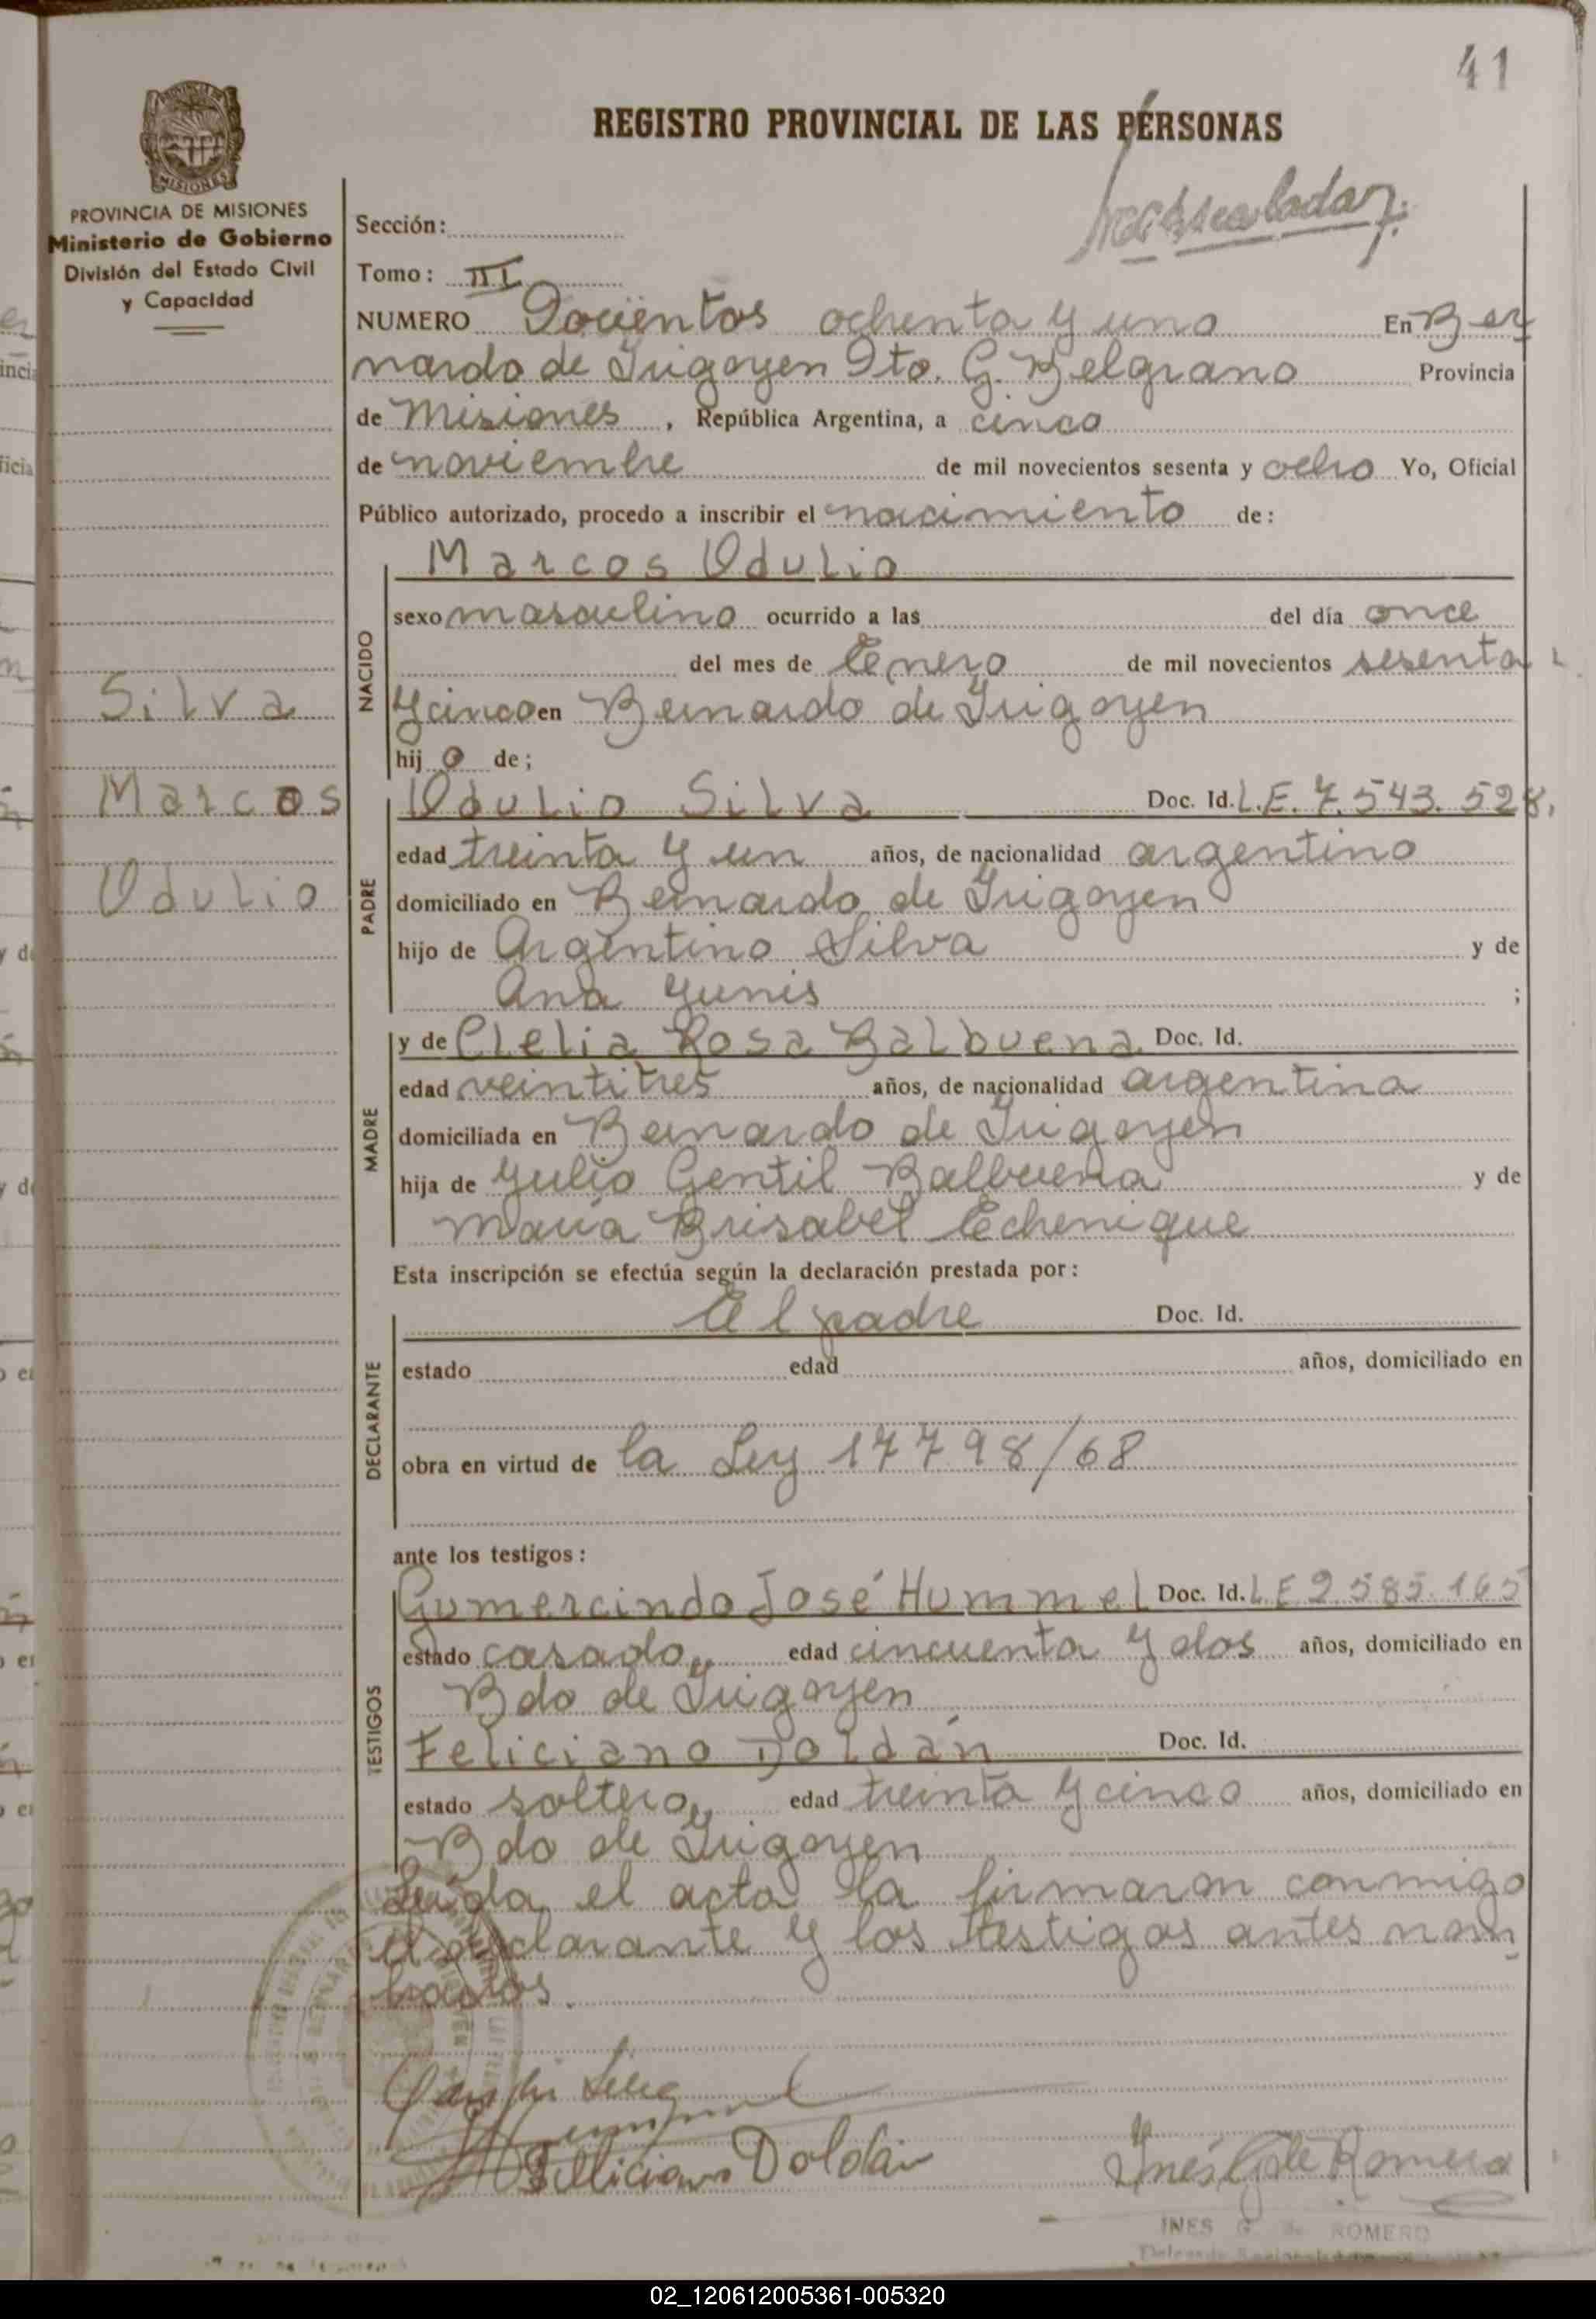 41
REGISTRO PROVINCIAL DE LAS PERSONAS
MISIONES
PROVINCIA DE MISIONES
Ministerio de Gobierno
División del Estado Civil
y Capacidad
Sección:
Tomo: III
NUMERO Docientos ochenta y uno En Ber
nardo de Irigoyen Dto. G. Belgrano Provincia
de Misiones, República Argentina, a cinco
de noviembre de mil novecientos sesenta y ocho Yo, Oficial
Público autorizado, procedo a inscribir el nacimiento de:
Marcos Odulio
NACIDO
sexo masculino ocurrido a las del día once
del mes de Enero de mil novecientos sesenta
y cinco en Bernardo de Irigoyen
hijo de;
Silva
Marcos
Odulio
PADRE
Odulio Silva Doc. Id. L.E. 7.543.528,
edad treinta y un años, de nacionalidad argentino
domiciliado en Bernardo de Irigoyen
hijo de Argentino Silva y de
Ana Yunis ;
MADRE
y de Clelia Rosa Balbuena Doc. Id.
edad veintitres años, de nacionalidad argentina
domiciliada en Bernardo de Irigoyen
hija de Yulio Gentil Balbuena y de
María Brisabel Echenique
Esta inscripción se efectúa según la declaración prestada por:
DECLARANTE
El padre Doc. Id.
estado edad años, domiciliado en
obra en virtud de la Ley 17798/68
ante los testigos:
TESTIGOS
Gumercindo José Hummel Doc. Id. L.E 2.585.165
estado casado, edad cincuenta y dos años, domiciliado en
Bdo de Irigoyen
Feliciano Doldán Doc. Id.
estado soltero, edad treinta y cinco años, domiciliado en
Bdo de Irigoyen
Leída el acta la firmaron conmigo
el declarante y los testigos antes nom
brados.
Felliciano Doldán
Inés G. de Romero
INES G. de ROMERO
02_120612005361-005320